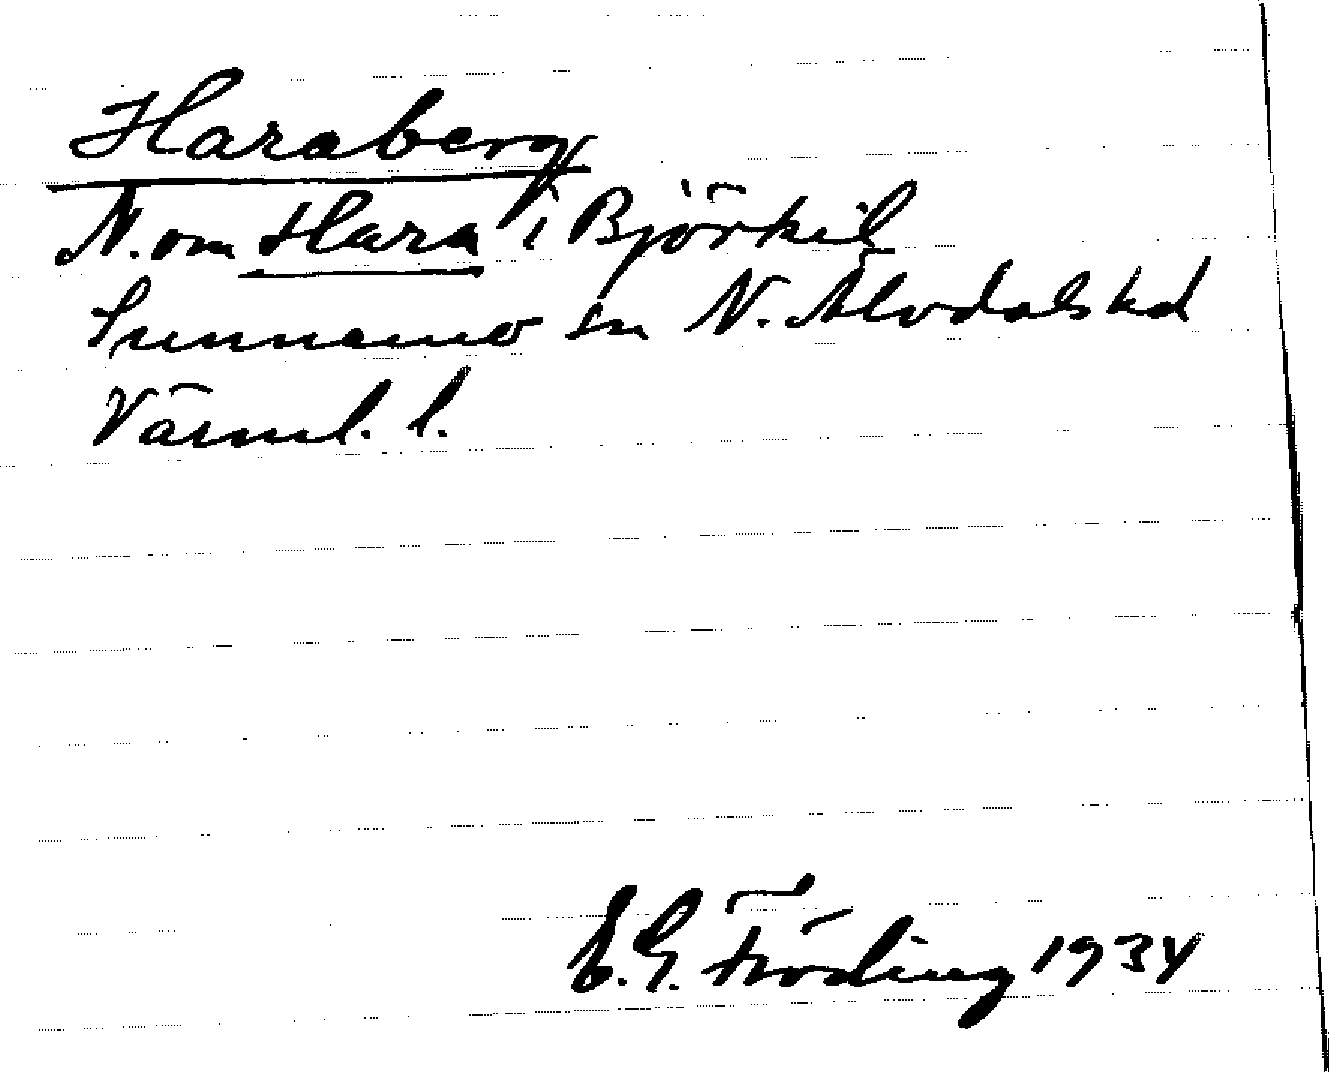 Haraberg
N. om Hara i Björkil
Sunnemo sn N. Älvdals hd
Värml. l.
E. G. Fröding 1934